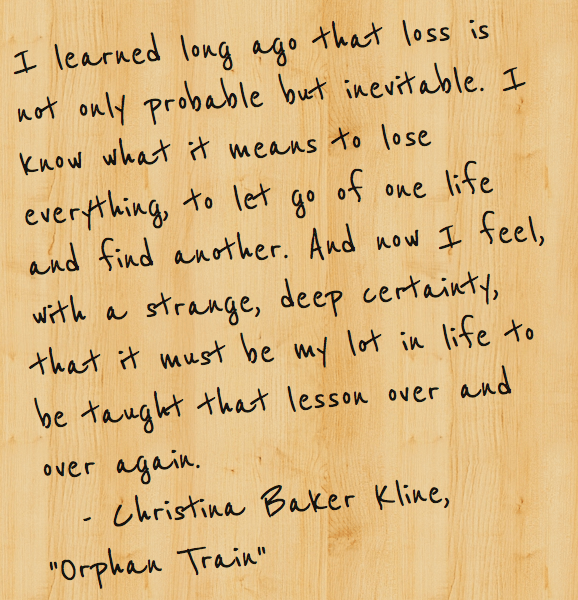 I learned long ago that loss is
not only probable but inevitable. I
know what it means to lose
everything, to let go of one life
and find another. And now I feel,
with a strange, deep certainty,
that it must be my lot in life to
be taught that lesson over and
over again.
- Christina Baker Kline,
"Orphan Train"